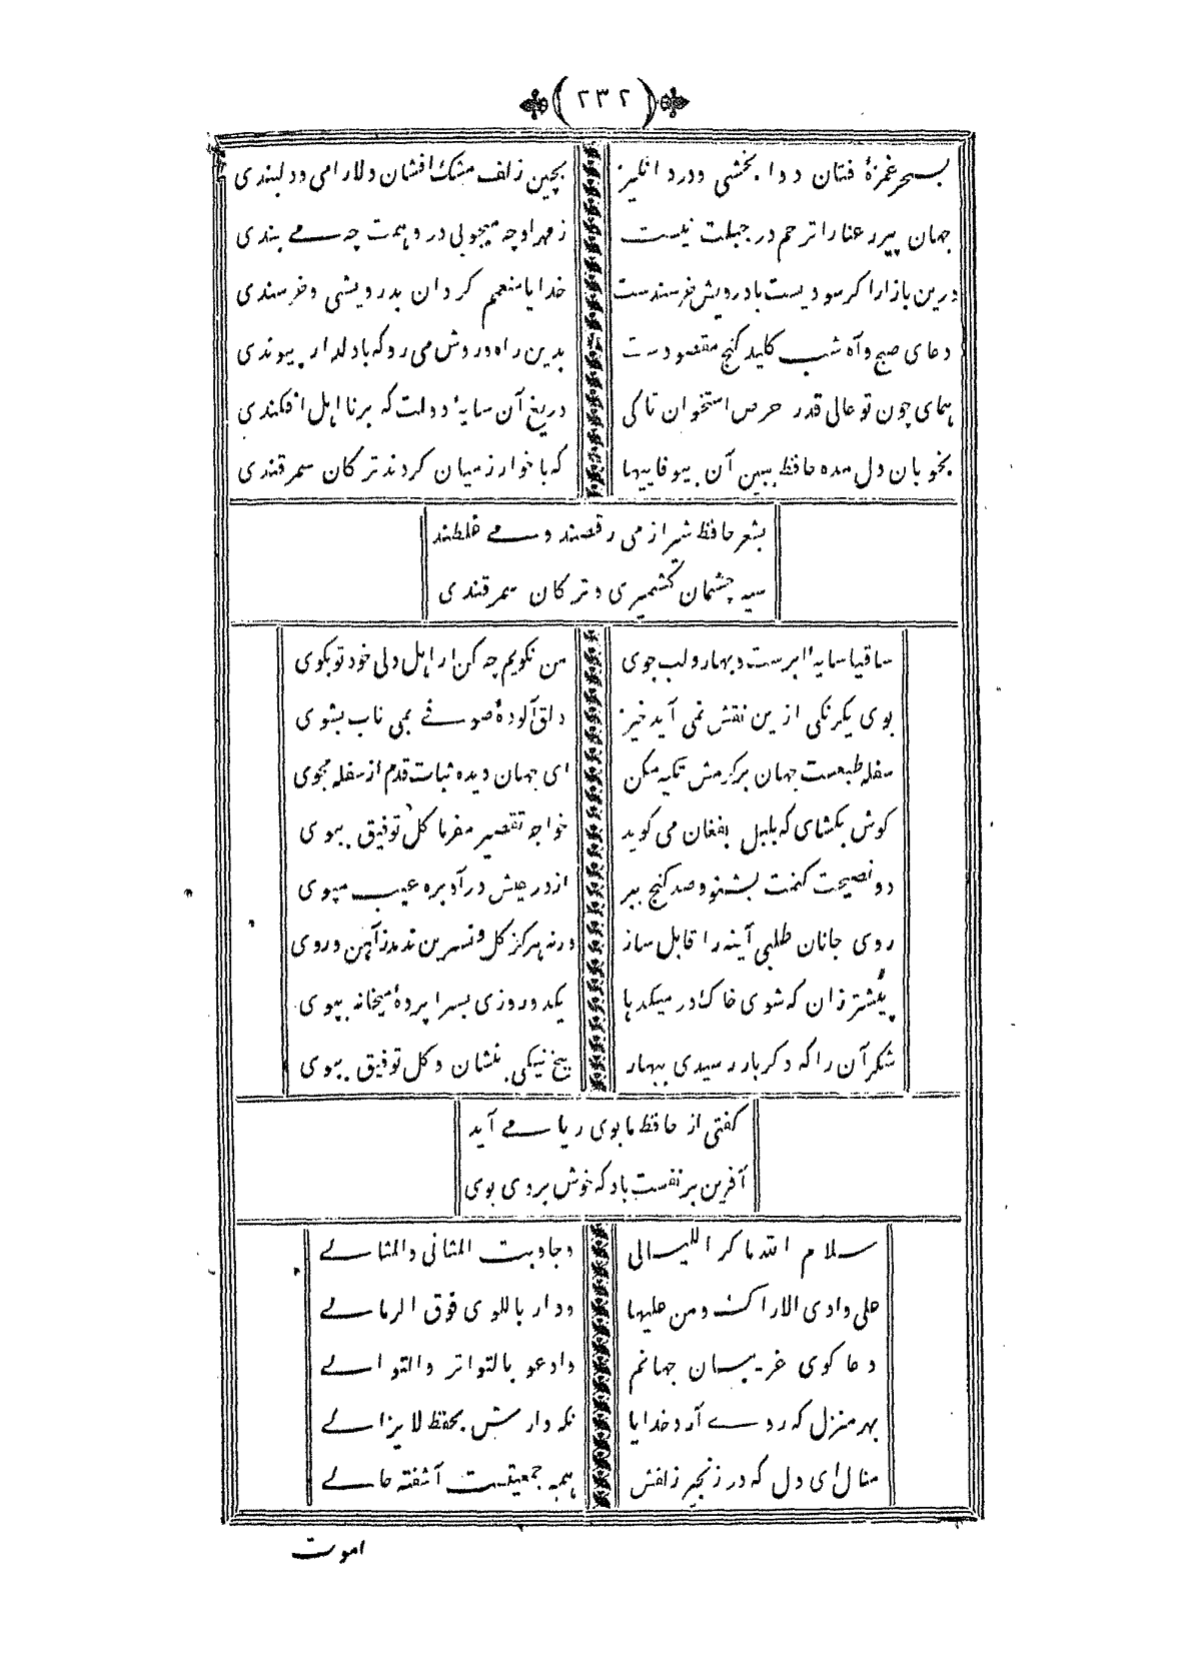 (٢٣٢)
بسحر غمزهٔ فتان دوا بخشی ودرد انگیز
بچین زلف مشک افشان دلارامی ودلبندی
جهان پیر رعنا را ترحم در جبلت نیست
زمهر او چه میجوئی درو همت چه مے بندی
درین بازار اکر سودیست با درویش خرسندست
خدایا منعمم کردان بدرویشی وخرسندی
دعای صبح وآه شب کلید کنج مقصودست
بدین راه وروش می رو که با دلدار پیوندی
همای چون تو عالی قدر حرص استخوان تا کی
دریغ آن سایهٔ دولت که برنا اهل افکندی
بخوبان دل مده حافظ ببین آن بیوفاییها
که با خوارزمیان کردند ترکان سمرقندی
بشعر حافظ شیراز می رقصند و مے غلطند
سیه چشمان کشمیری و ترکان سمرقندی
ساقیا سایهٔ ابرست وبهار ولب جوی
من نکویم چه کن ار اهل دلی خود تو بکوی
بوی یکرنکی ازین نقش نمی آید خیز
دلق آلودهٔ صوفے بمی ناب بشوی
سفله طبعست جهان برکرمش تکیه مکن
ای جهان دیده ثبات قدم از سفله مجوی
کوش بکشای که بلبل بفغان می کوید
خواجه تقصیر مفرما کل توفیق ببوی
دو نصیحت کنمت بشنو وصد کنج ببر
از در عیش درآ وبره عیب مپوی
روی جانان طلبی آینه را قابل ساز
ورنه هرکز کل ونسرین ندمد زآهن وروی
پیشتر زان که شوی خاک در میکدها
یکدو روزی بسرا پردهٔ میخانه بپوی
شکر آن را که دکر بار رسیدی ببهار
بیخ نیکی بنشان وکل توفیق ببوی
کفتی از حافظ ما بوی ریا مے آید
آفرین بر نفست باد که خوش بردی بوی
سلام الله ما کر اللیالی
وجاوبت المثانی والمثالے
علی وادی الاراک ومن علیها
ودار باللوی فوق الرمالے
دعا کوی غریبان جهانم
وادعو بالتواتر والتوالے
بهر منزل که روے آرد خدایا
نکه دارش بحفظ لا یزالے
منال ای دل که در زنجیر زلفش
همه جمعیتست آشفته حالے
اموت